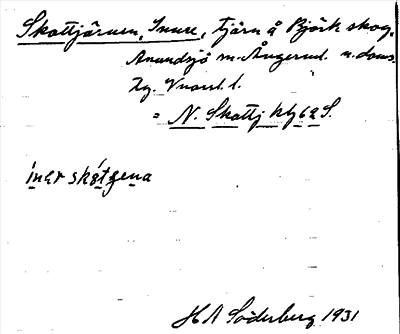 Skottjärnen, Inre, tjärn å Björk skog,
Anundsjö sn. Ångerml. n. doms.
Xg. Vnorrl. l.
= N. Skottj kbl 62 S.
ı́nər skọ́tɡena
H A Söderberg 1931